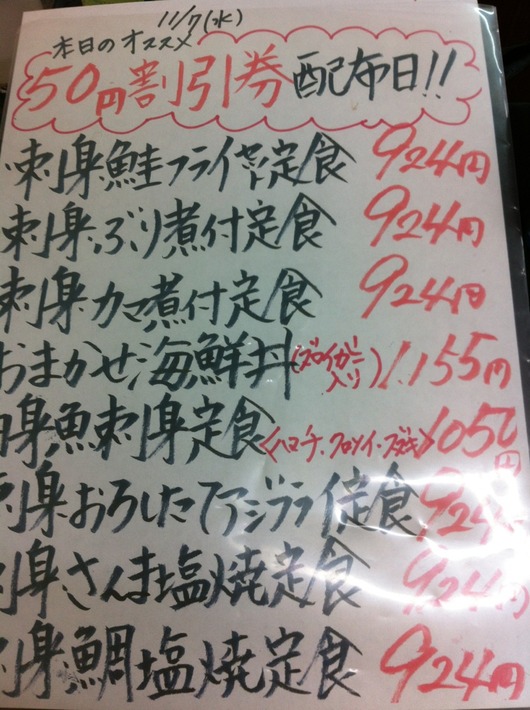 11/7(水)
本日のオススメ
50円割引券配布日!!
刺身鮭フライ定食 924円
刺身ぶり煮付定食 924円
刺身カマ煮付定食 924円
おまかせ海鮮丼(ズワイガニ入り) 1.155円
身魚刺身定食<ハマチ、クロソイ・スズキ>1050円
刺身おろしたてアジフライ定食 924
刺身さんま塩焼定食 924円
刺身鯛塩焼定食 924円